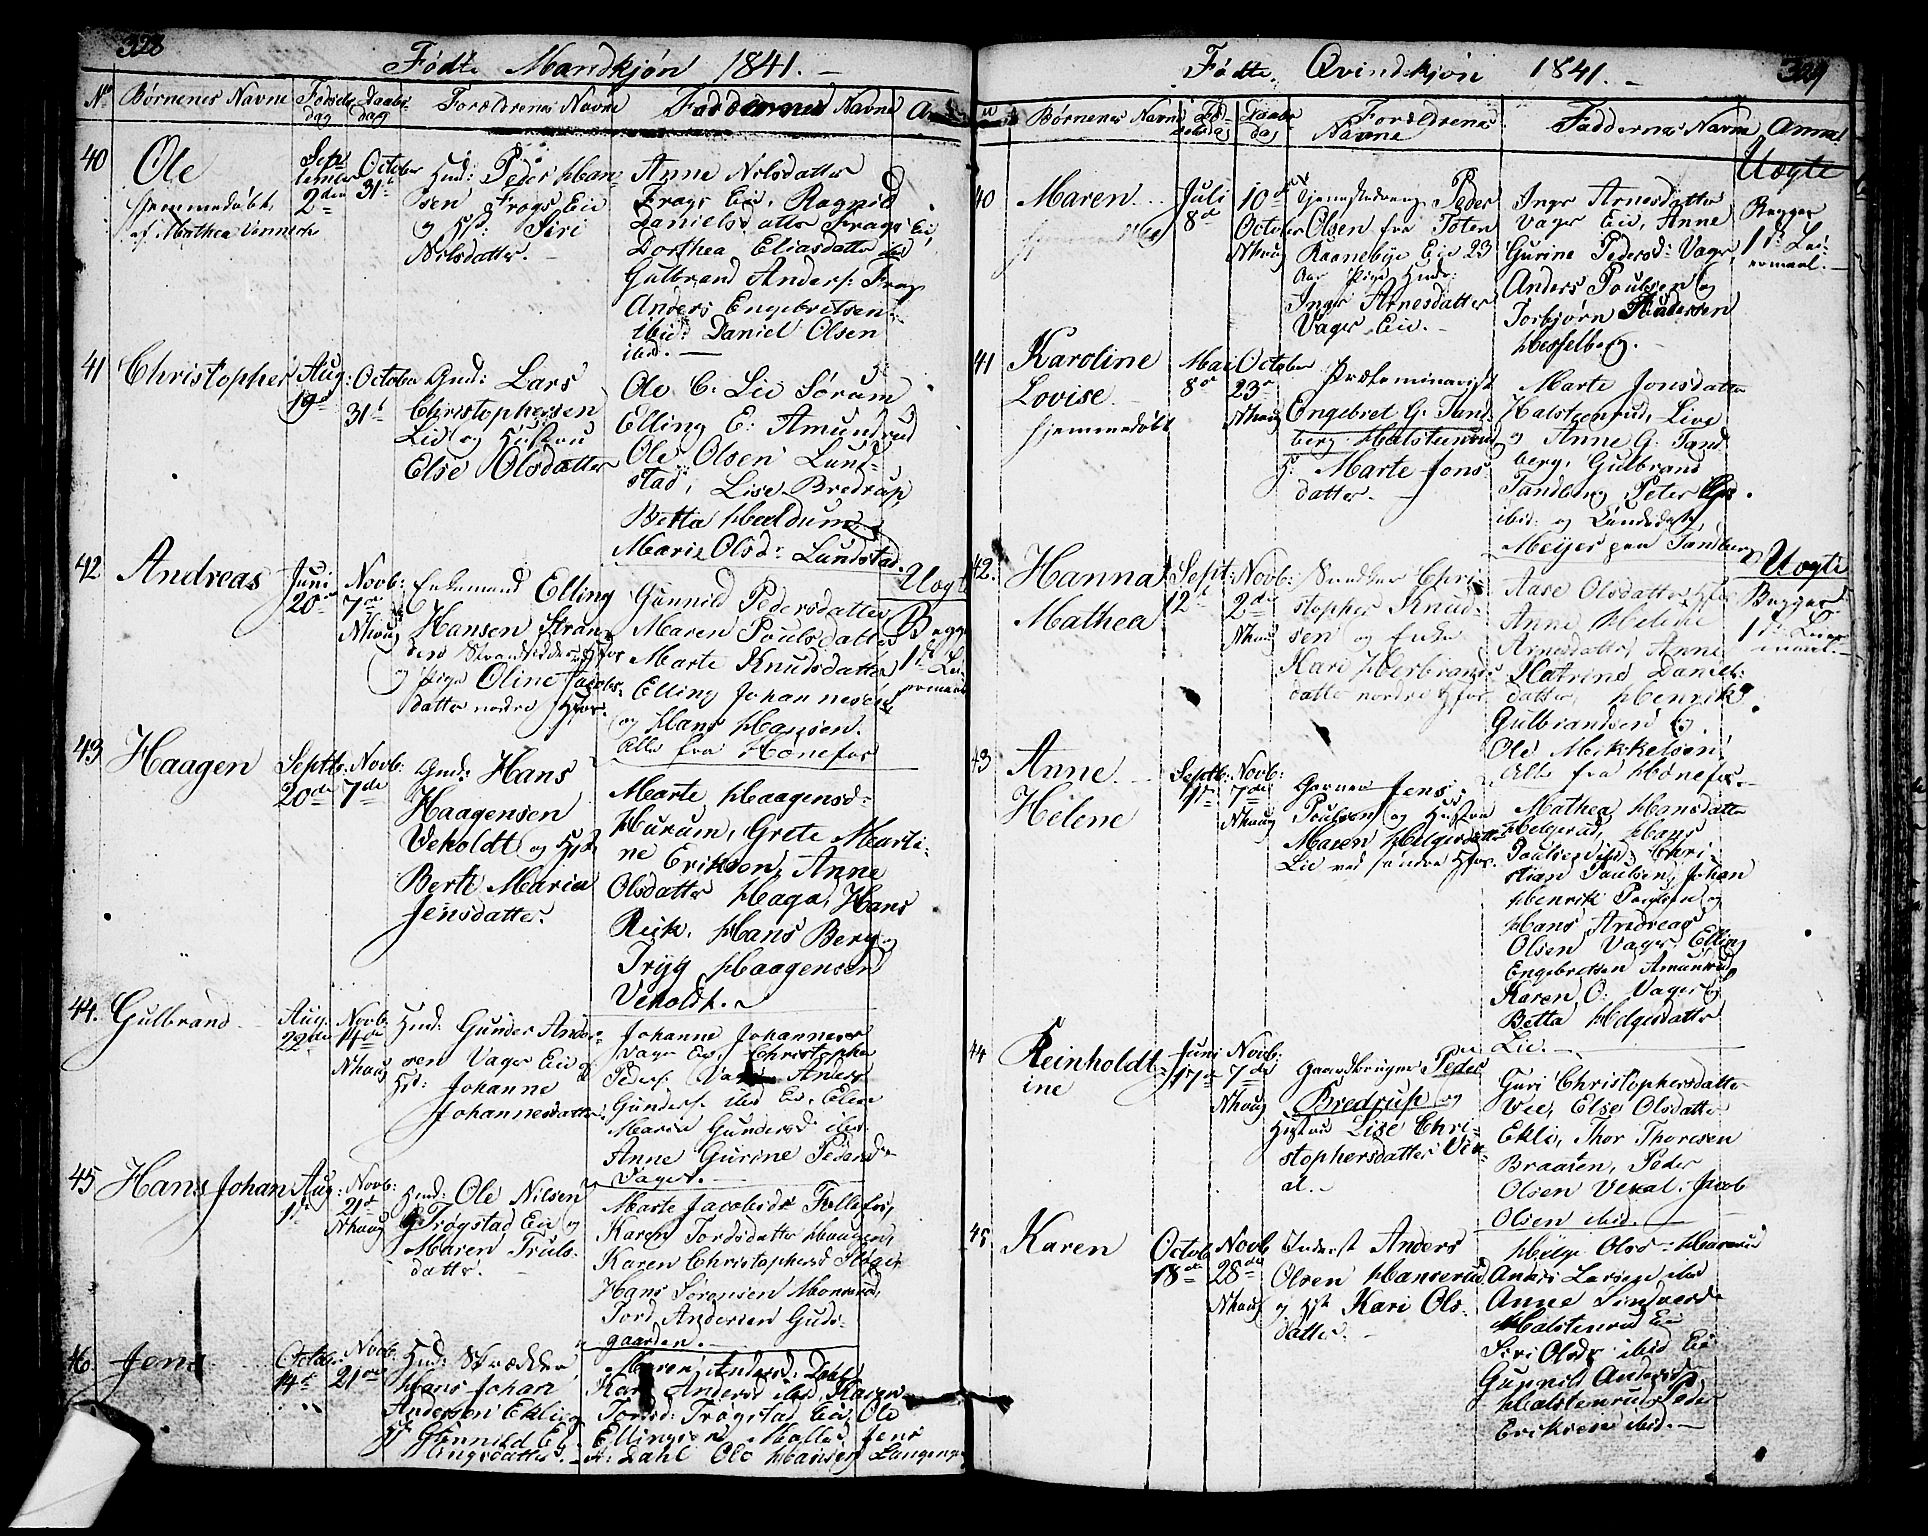 328
Födte Mandkjön 1841.
No Börnenes Navne Födsels dag Daabs dag Forældrenes Navne Faddernes Navne
40 Ole
hjemmedöbt
af Mathea
September 2den October 31t
Hmd: Peder Han-
sen Frogs Eie
og Hst: Siri
Nilsdatter.
Anne Nilsdatter
Frogs Eie, Ragnild
Danielsdatter Frogs Eie,
Dorthea Eliasdatter ibd
Gulbrand Anders: Frog
Anders Engebretsen
ibid: Daniel Olsen
ibd.
41 Christopher Aug: 19d October 31t
Gmd: Lars
Christophersen
Lie og Hustru
Else Olsdatter
Ole C. Lie Sörum
Elling E. Amundrud
Ole Olsen Lund-
stad, Lise Bredrup,
Betta Hveldum
Marie Olsd: Lundstad.
42 Andreas Juni 20de Novb: 7de Nhoug
Enkemand Elling
Hansen Stran-
den
og Pige Oline Jacobs-
datter nordre Hfos.
Gunnild Pedersdatter
Maren Poulsdatter
Marte Knudsdatter
Elling Johannesen
og Hans Hansen.
Alle fra Hönefos
Uægte
Begges
1ste Lei-
ermaal
43 Haagen Septb: 20de Novb: 7de
Gmd: Hans
Haagensen
Veholdt og Hst:
Berte Maria
Jensdatter.
Marte Haagensd:
Hurum, Grete Marti-
ne Eriksen, Anne
Olsdatter Haga, Hans
Reik, Hans Berg og
Tryg Haagensen
Veholdt.
44. Gulbrand Aug. 22de Novb: 14de Nhoug
Hmd: Gunder Ander-
sen Vager Eie og
Hst: Johanne
Johannesdatter.
Johanne Johannesd
Vager Eie, Christopher
Peders: Vager Anders
Gunders: ibd Eie, Elen
Maria Gundersd ibd.
Anne Gurine Pedersd
Vager.
45 Hans Johan Aug: 1ste Novb: 21de Nhoug
Hmd: Ole Nilsen
Trögstad Eie og
Maren Truls-
datter.
Marte Jacobsdt Follefos,
Karen Tordsdatter Haugen,
Karen Christophersd
Hans Sörensen Monserud,
Tord Andersen Guds-
gaarden.
46 Jens October 14de Novb. 21de
Hmd: Skrædder
Hans Johan
Andersen Ekli og
Hst Gunnild El-
lingsdatter.
Maren Andersd: Dahl
Kari Andersd ibd, Karen
Tomsd: Trögstad Eie, Ole
Ellingsen Jens
A: Dahl Ole Hansen
329
Födte Qvindekjön 1841.
No Börnenes Navne Födselsdag Daabs dag Forældrenes Navne Faddernes Navne Anm:
40 Maren
hjemmedöbt
Juli 8de 10de October Nhoug
Tjenestedreng Peder
Olsen fra Toten
Raanebye Eie 23
Aar Pige
Inger Arnesdatter
Vager Eie.
Inger Arnesdatter
Vager Eie, Anne
Gurine Pedersd: Vager,
Anders Poulsen og
Torbjörn Pedersen
Hesselberg.
Uægte
Begges
1ste Lei-
ermaal.
41 Karoline
Lovise
hjemmedöbt
Mai 8de October 23de Nhoug
Engebret G. Tand-
berg Halsteinrud
H: Marte Jons-
datter.
Marte Jonsdatter
Halsteenrud, Live
og Anne G: Tand
berg, Gulbrand
Tandberg Peter
ibid: og
Meijer paa Tandberg
42. Hanna
Mathea
Sept: 12te Novb: 2de Nhoug
Snedker Chri-
stopher Knud-
sen og Enke
Kari Herbrands-
datter nordre Hfos.
Aase Olsdatter Hfos
Anne Helene
Arnesdatter, Anne
Katrine Daniels-
datter, Henrik
Gulbrandsen og
Ole Mikkelsen.
Alle fra Hönefos.
Uægte
Begges
1ste Leier-
maal.
43 Anne
Helene
Septb: Novb: 7de Nhoug
Garver Jens
Poulsen og Hustru
Maren Helgesdatter
Lie ved söndre Hfos.
Mathea Hansdatter
Helgerud, Hans
Poulsen ibd: Chri-
stian Poulsen, Johan
Henrik Poulsen og
Hans Andreas
Olsen Vager, Elling
Engebretsen Amundrud
Karen O: Vager og
Betta Helgesdatter
Lie.
44 Reinholdt-
ine
Juni 17de Novb: 7de Nhoug
Gaardbruger Peder
Bredrup og
Hustru Lise Chri-
stophersdatter Vex-
al.
Guri Christophersdatter
Vee, Else Olsdatter
Ekli, Thor Thoresen
Braaten, Peder
Olsen Vexal. Jacob
Olsen ibid.
45 Karen Octob 18de Novb 28de Nhoug
Inderst Anders
Olsen Hanserud
og Hst Kari Ols-
datter.
Helge Olsd
Anders Larsen ibd
Anne Sindersd
Halstenrud Eie
Siri Olsdr ibid Eie
Gunnild Andersd
Halstenrud Peder
Eriksen ibid.